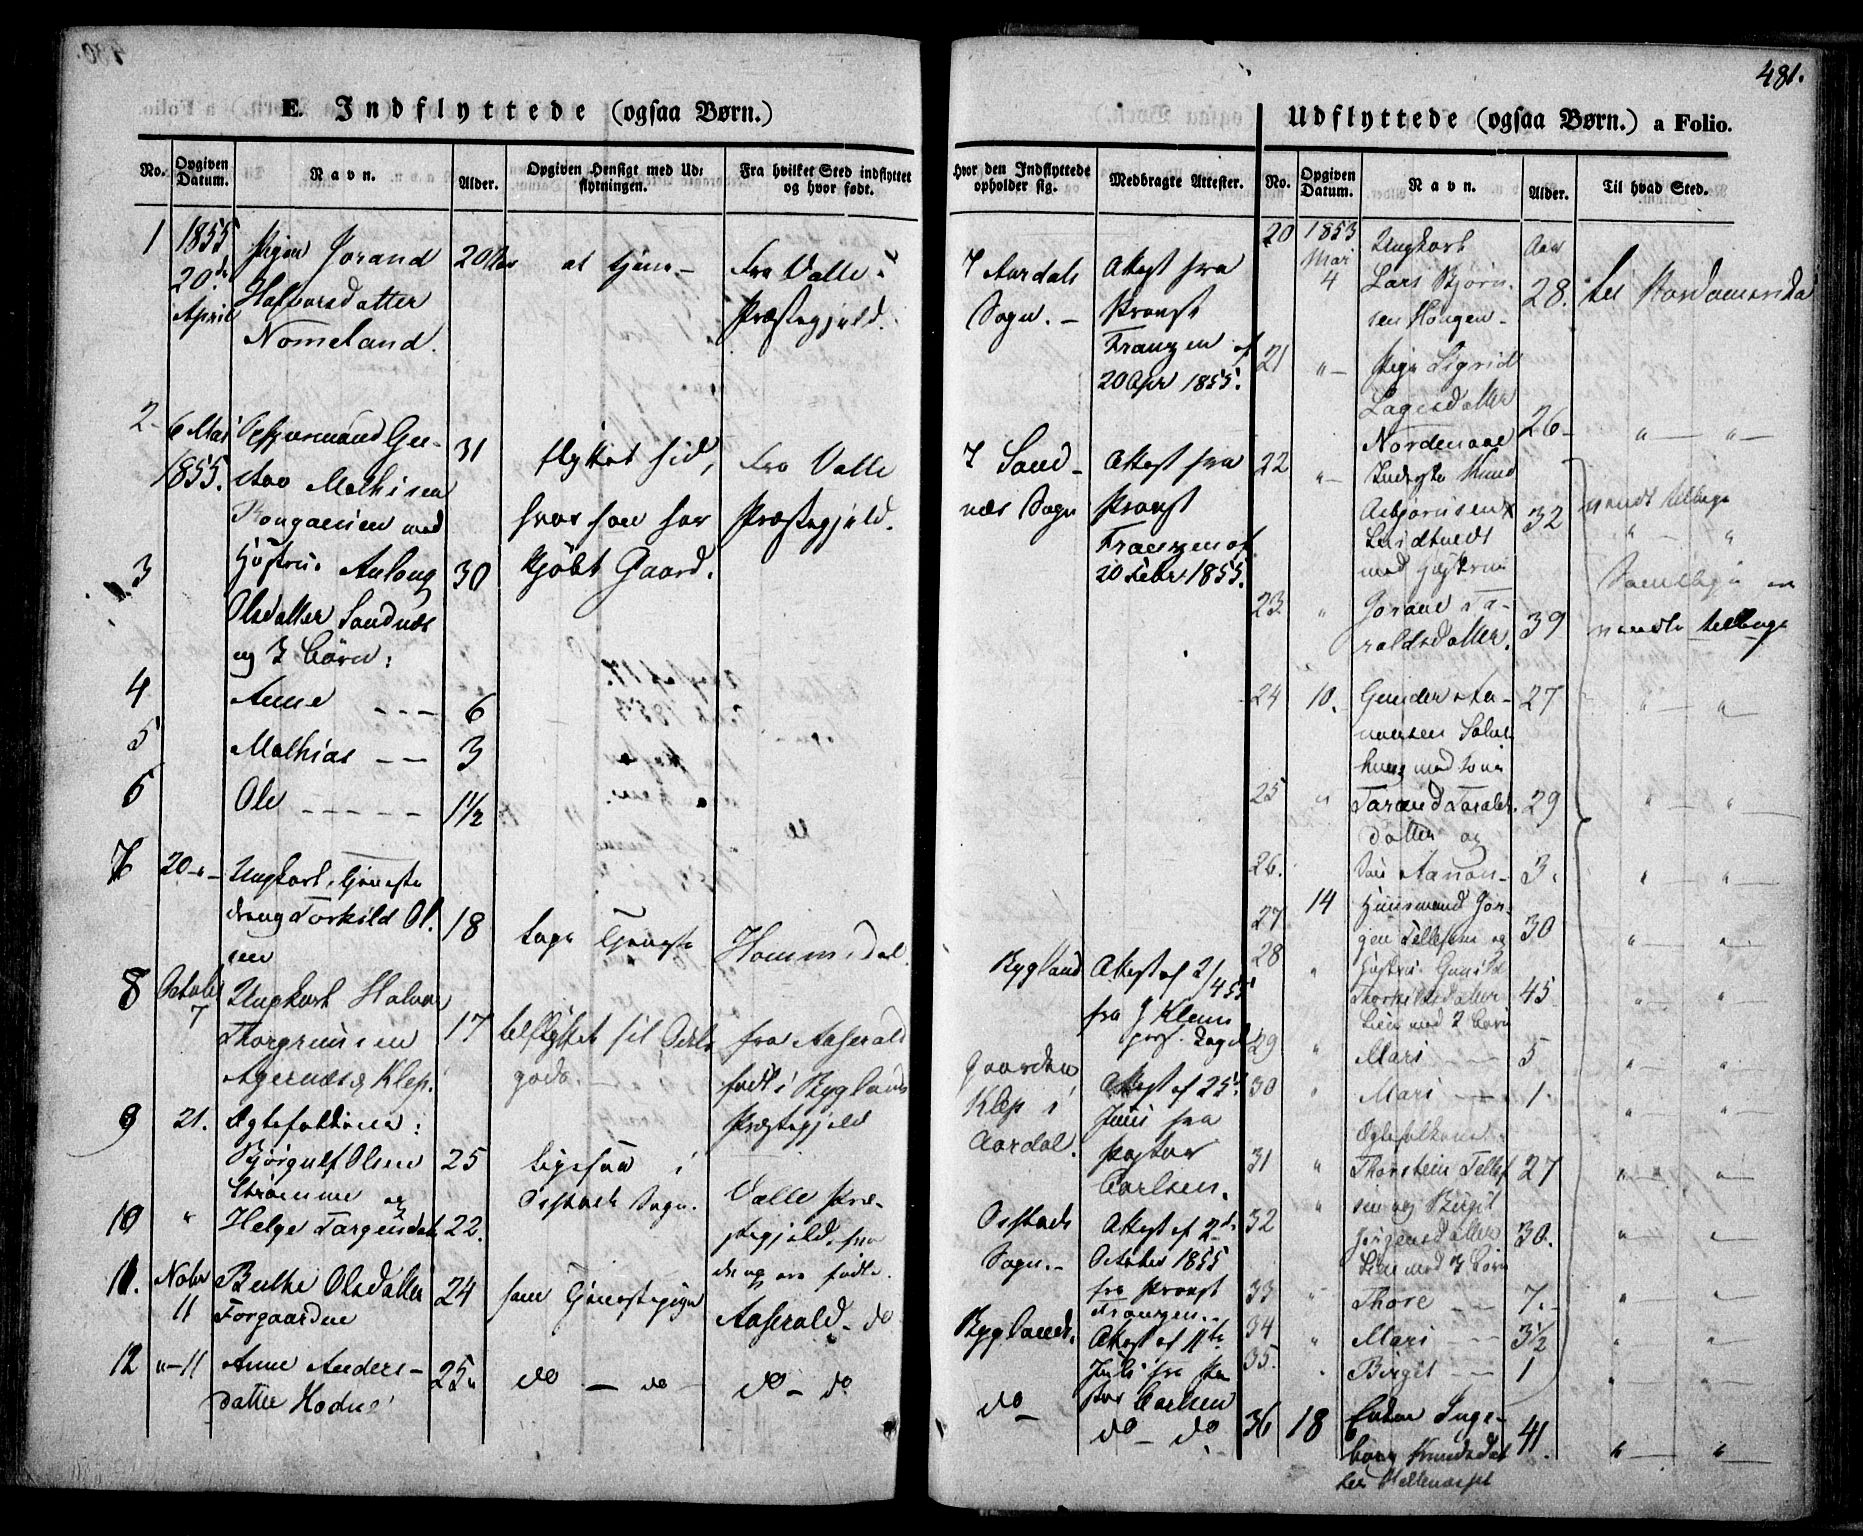 481.
E. Indflyttede (ogsaa Børn.)
No.
Opgiven Datum.
Navn.
Alder.
Opgiven Hensigt med Udflytningen.
Fra hvilket Sted indflyttet og hvor født.
Hvor den Indflyttede opholder sig.
Medbragte Attester.
1
1855
20de
April
Pigen Jorand
Halvorsdatter
Nomeland.
20 Aar
at tjene
Fra Valle
Præstegjeld.
I Aardals
Sogn.
Attest fra
Provst
Franzen af
20 Apr 1855.
2
6 Mai
1855.
Mathisen
med
31
flyttet hid,
hvor han har
kjøbt Gaard.
Fra Valle
Præstegjeld.
I Sand-
næs Sogn
Attest fra
Provst
Franzen af
20 Febr. 1855.
3
Hustru Anlaug
Olsdatter Sandnæs
og 3 Børn:
30
4
Anne
6
5
Mathias
3
6
Ole
1½
7
20
Ungkarl, Tjeneste
dreng Torkild Ol
sen
18
søge Tjeneste
Hommedal.
Bygland
Attest af 2/4 55
fra
8
October
7
Ungkarl Halvor
Thorgrimsen
Klep.
17
fra Aaserald
født i Byglands
Præstegjeld
Gaarden
Klep i
Aardal.
Attest af 25de
Juni fra
Pastor
Carlsen.
9
21.
Ægtefolkene:
Bjørgulf Olsen
Strømme og
25
ligesaa i
Østads Sogn.
Valle Præ-
stegjeld, fra
10
"
Helge Targeirsdatt
22.
Østads
Sogn.
Attest af 2de
October 1855
fra Provst
Franzen.
11.
Novbr
11
Berthe Olsdatter
Forgaarden
24
som Tjenestepige
Aaserald do
Byglands.
Attest af 11te
Juli fra Pa
stor Carlsen
12
" 11
Anne Anders-
datter Hodne
25
do do
do do
do
do do
Udflyttede (ogsaa Børn.) a Folio.
No.
Opgiven Datum.
Navn.
Alder.
Til hvad Sted.
20
1853
Mai
4
Ungkarl
Lars Bjørn-
sen Haugen
Aar
28.
til Nordamerika
21
"
Pige Sigrid
Lagesdatter
26
" "
22
"
Knud
Asbjørnsen
med Hustru
32
vendt tilbage
" "
23
"
Jorand Ta-
raldsdatter.
39
vendte tilbage
24
10.
Gunder Aa-
nonsen
med Kone
27
" "
25
"
Tarand Taralds
datter og
29
" "
26.
Søn Aanon
3.
" "
27
14
Huusmand Jør-
gen Tellefsen og
30
" "
28
"
Hustru Gunild
Thorkildsdatter
Lien med 2 Børn
45
" "
29
"
Mari
5
" "
30
"
Mari
1.
" "
31
"
Ægtefolkene:
Thorstein Tellef
27
" "
32
"
sen og Birgit
Jørgensdatter
Lien med 3 Børn
30.
" "
33
"
Thore
7.
" "
34
"
Mari
3½
" "
35.
"
Birgit
1
36
18
Enken Inge-
borg Knudsdat
ter
41.
" "